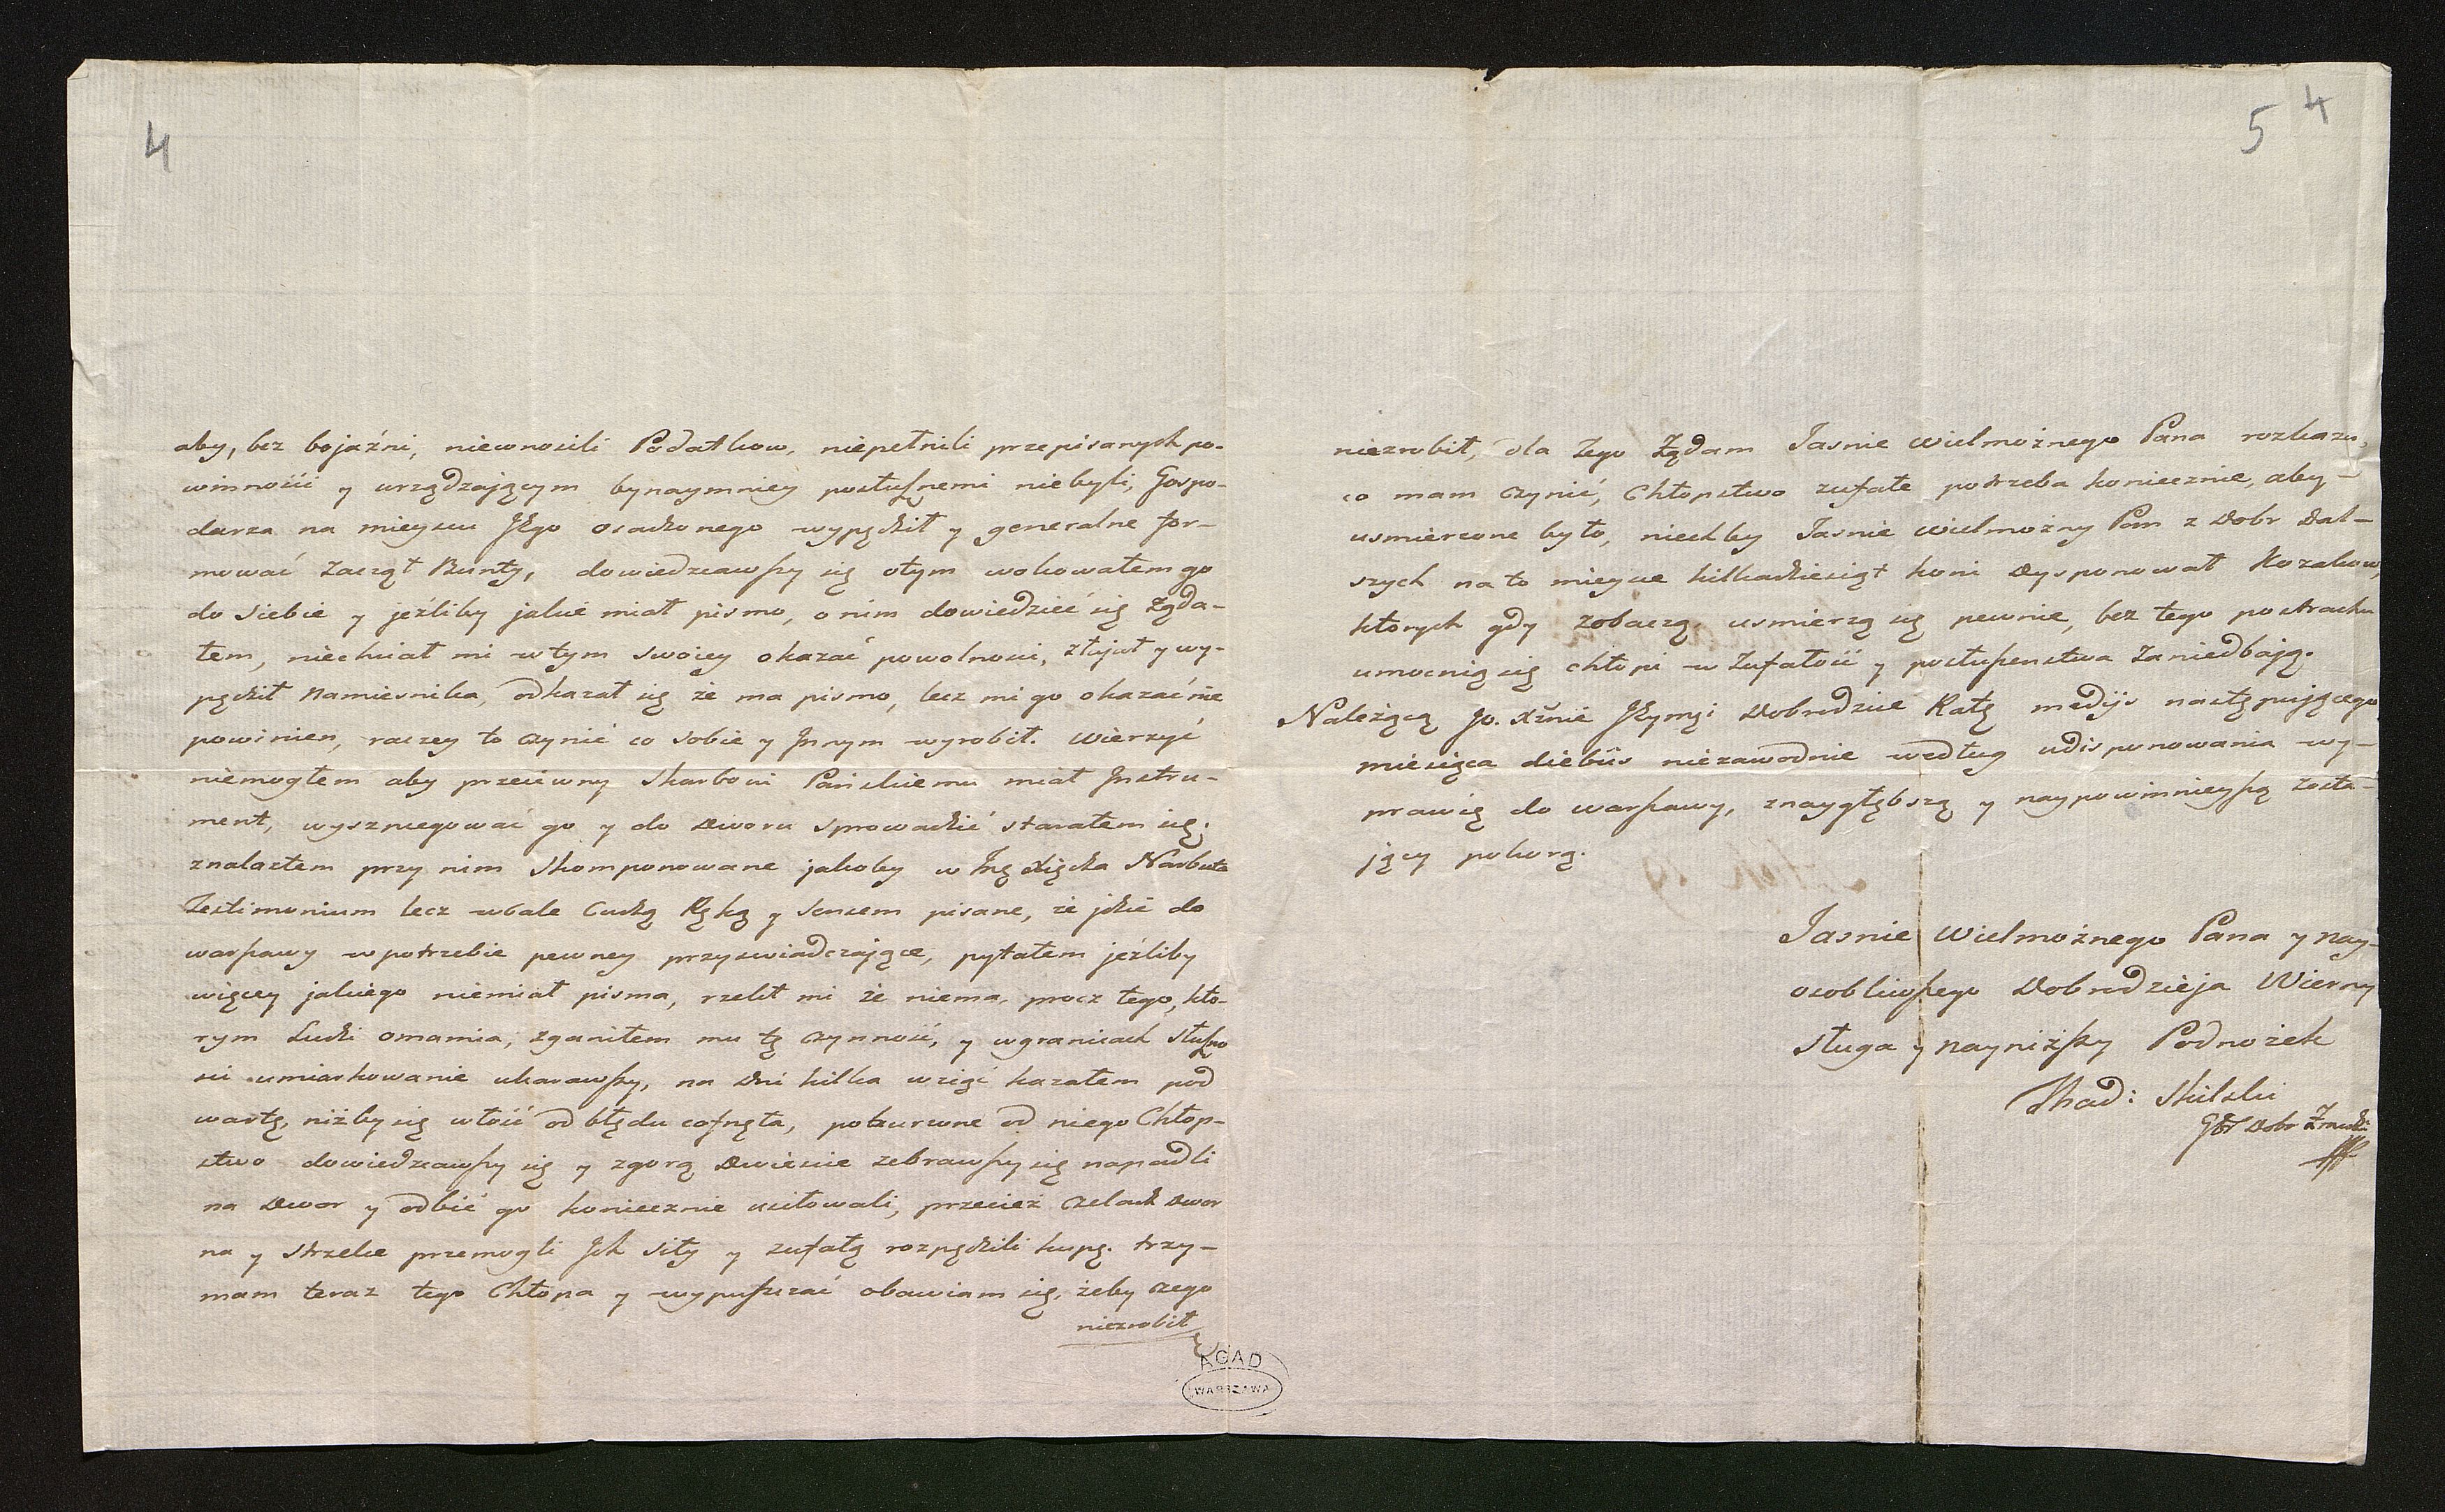 4
aby, bez bojaźni, niewnosili Podatkow, niepełnili przepisanych po-
winności y urządzającym bynaymniey posłusznemi niebyli, Gospo-
darza na mieyscu Jego osadzonego wypędził y generalne for-
mować Zaczął Bunty, dowiedziawszy się otym wokowałem go
do Siebie y jeźliby jakie miał pismo, o nim dowiedzieć się żąda-
łem, niechciał mi wtym swoiey okazać powolności, złajał y wy-
pędził Namiesnika, odkazał się że ma pismo, lecz mi go okazać nie
powinien, raczey to czynić co sobie y Jnnym wyrobił. Wierzyć
niemogłem aby przeciwny Skarbowi Pańskiemu miał Jnstru-
ment, wyszpiegować go y do Dworu sprowadzić starałem się;
znalazłem przy nim Skomponowane jakoby w Jmę Xiędza Narbuta
Testimonium lecz wcale Cudzą Ręką y Sensem pisane, że jdzie do
warszawy wpotrzebie pewney przyswiadczające, pytałem jeźliby
więcey jakiego niemiał pisma, rzekł mi że niema, procz tego, kto-
rym Ludzi omamia, zganiłem mu tę czynność, y wgranicach słuszno
sci umiarkowanie ukarawszy, na Dni kilka wziąć kazałem pod
wartę, niżby się włość od błędu cofnęła, pobuzone od niego Chłop-
stwo dowiedziawszy się y zgorą Dwiescie zebrawszy się napadli
na Dwor y odbić go koniecznie usiłowali, przecież czeladź Dwor
na y Strzelce przemogli Jch siły y zufałą rozpędzili kupę. trzy-
mam teraz tego Chłopa y wypuszczać obawiam się, żeby czego
niezrobił
AGAD
WARSZAWA
5 4
niezrobił, dla Tego Żądam Jasnie Wielmożnego Pana rozkazu,
co mam czynić, Chłopstwo zufałe potrzeba koniecznie, aby
usmierzone było, niechby Jasnie Wielmożny Pan z Dobr Dal-
szych na to mieysce kilkadziesiąt koni Dysponował Kozakow,
ktorych gdy zobaczą usmierzą się pewnie, bez tego postrachu
umocnią się chłopi w Zufałość y posłuszenstwa Zaniedbają.
Należącą Jo. Xżnie Jeymści Dobrodzice Ratę medijs następującego
miesiąca diebus niezawodnie według udisponowania wy-
prawię do warszawy, znaygłębszą y naypowinnieyszą zosta-
jący pokorą.
Jasnie Wielmożnego Pana y nay-
osobliwszego Dobrodzieja Wierny
sługa y nayniższy Podnożek
Thad: Skilski